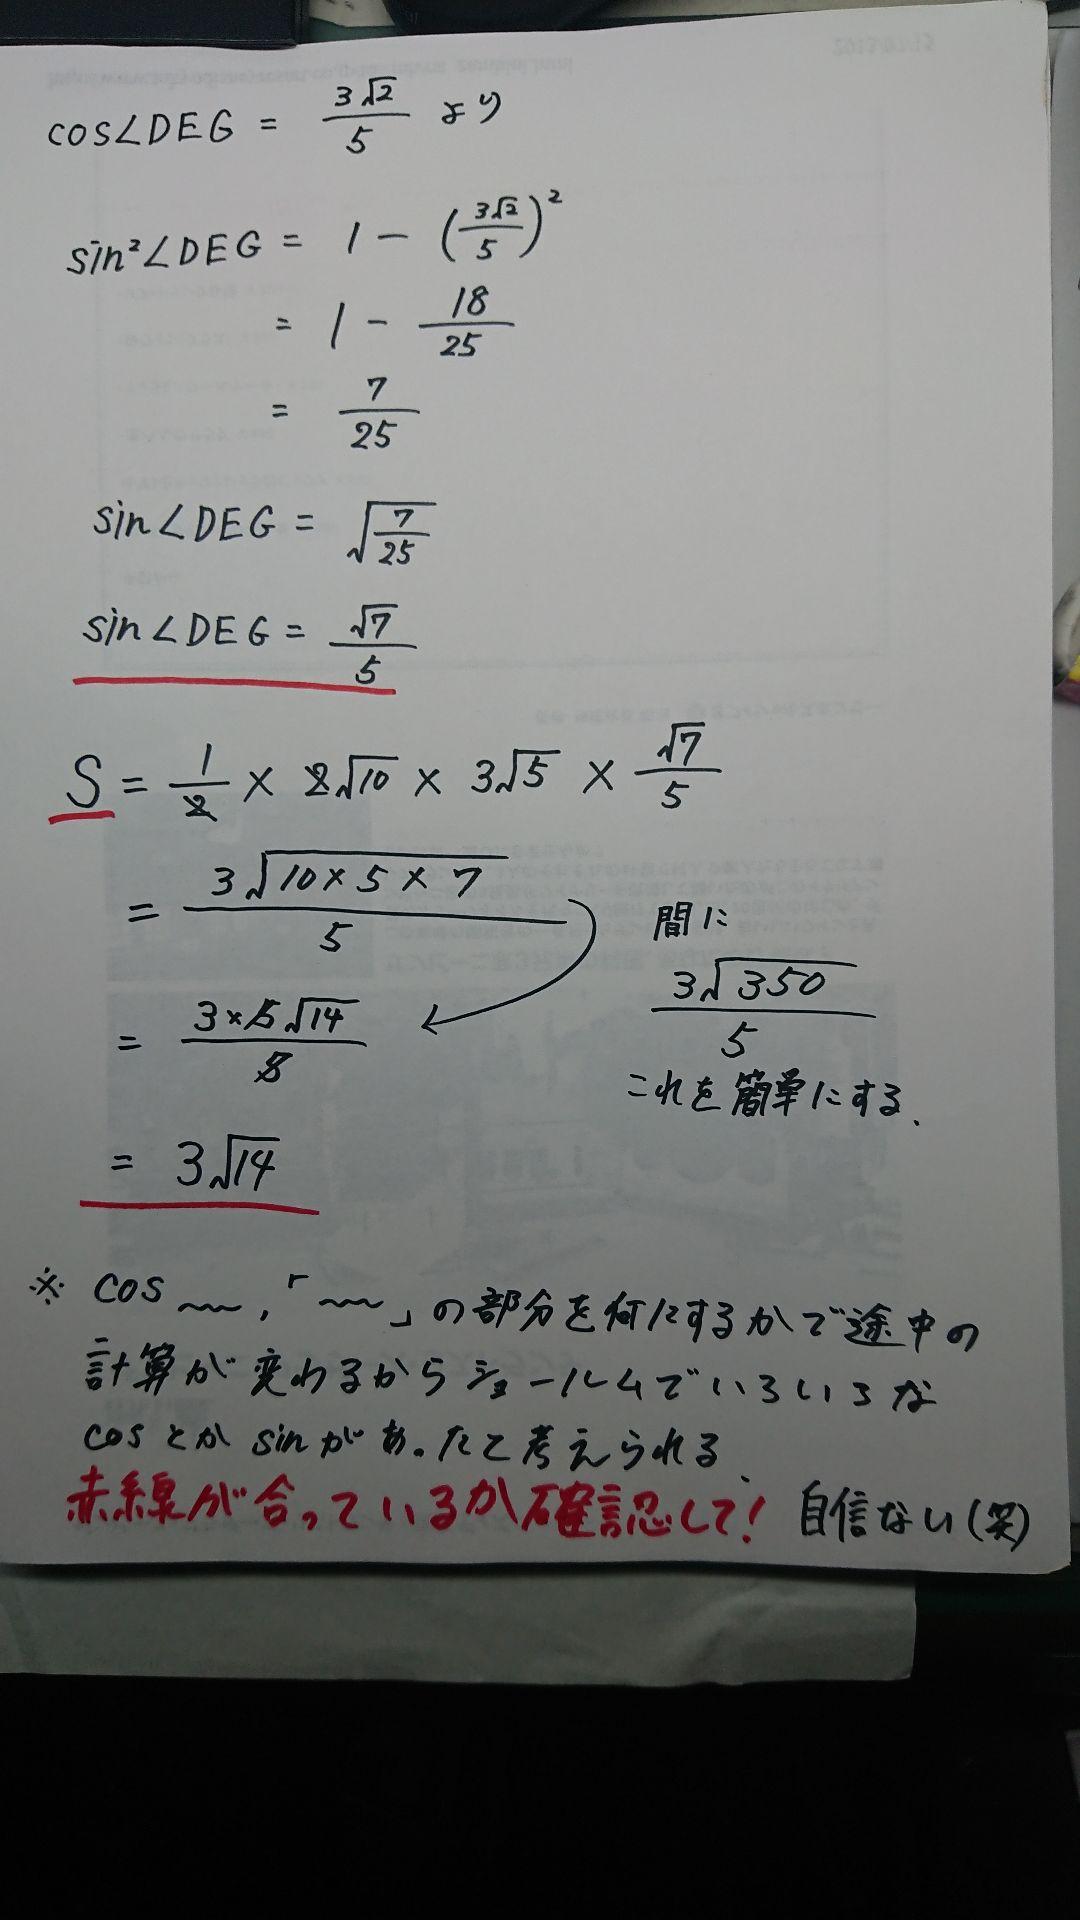 cos∠DEG = 3√2/5 より
sin²∠DEG = 1 - (3√2/5)²
= 1 - 18/25
= 7/25
sin∠DEG = √(7/25)
sin∠DEG = √7/5
S = 1/2 × 2√10 × 3√5 × √7/5
= 3√(10×5×7)/5
間に
3√350/5
これを簡単にする.
= 3×5√14/5
= 3√14
※ cos 〜〜, 「〜〜」の部分を何にするかで途中の
計算が変わるからショールムでいろいろな
cosとかsinがあったと考えられる.
赤線が合っているか確認して! 自信ない(笑)